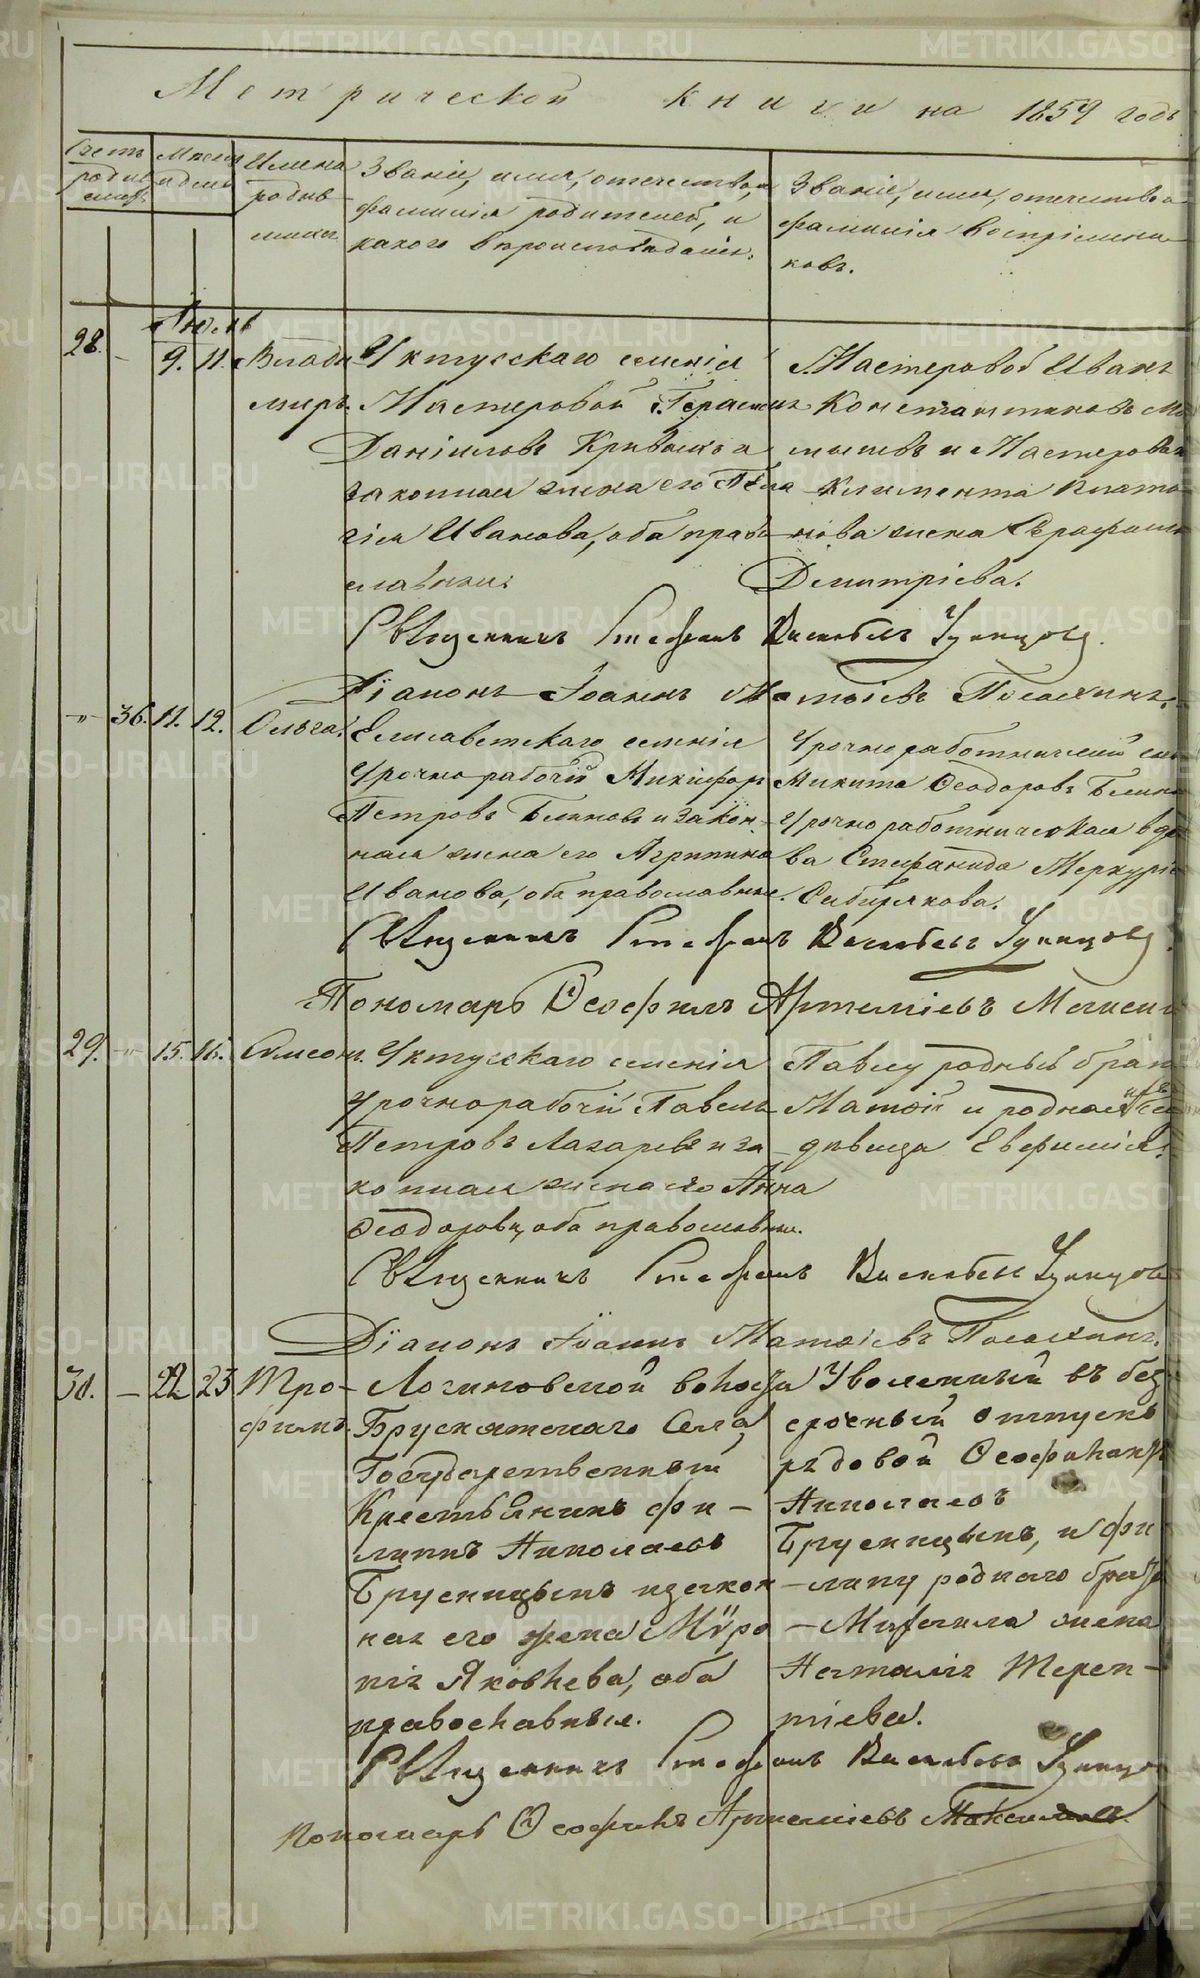 Метрической книги на 1859 годъ
Счетъ родив
Имена родив
Званіе, имя, отечество, и
фамилія родителей, и
какого вѣроисповѣданія.
Званіе, имя, отечество и
фамилія воспріемни
ковъ.
Іюль
28. 9. 11. Влади
миръ.
Уктусскаго селенія
Мастеровой Герасимъ
Даніиловъ и
законная жена его Пела
гія Иванова, оба право
славные.
Мастеровой Иванъ
Константиновъ
и Мастероваго
Климента Плато
нова жена Серафима
Димитріева.
Священникъ Стефанъ Васильевъ Удинцовъ.
Діаконъ Іоаннъ Матѳіевъ
36. 11. 12. Ольга.
Елисаветскаго селенія
Урочнорабочій Никифоръ
Петровъ Блиновъ и закон
ная жена его Агрипина
Иванова, оба православные.
Урочноработническій сынъ
Никита Ѳеодоровъ
Урочноработническая вдо
ва Стефанида Меркурі
Сибирякова.
Священникъ Стефанъ Васильевъ Удинцовъ.
Пономарь Ѳеофилъ Артеміевъ
29. 15. 16. Симеонъ.
Уктусскаго селенія
Урочнорабочій Павелъ
Петровъ Лазаревъ и за
конная жена его Анна
Ѳеодорова, оба православные.
Павлу родный братъ
Матѳій и родная
дѣвица Евфимія.
Священникъ Стефанъ Васильевъ Удинцовъ
Діаконъ Іоаннъ Матѳіевъ
30. 22 23 Тро
фимъ.
Логиновской волости
Брусянскаго Села,
Государственный
Крестьянинъ Фи
липпъ Николаевъ
Брусницынъ и закон
ная его жена Мѵро
нія Яковлева, оба
православныя.
Уволенный въ без
срочный отпускъ
рядовой Ѳеофилактъ
Николаевъ
Брусницынъ, и Фи
липу роднаго брата
Михаила жена
Наталія Терен
тіева.
Священникъ Стефанъ Васильевъ Удинцовъ
Пономарь Ѳеофилъ Артеміевъ
METRIKI.GASO-URAL.RU